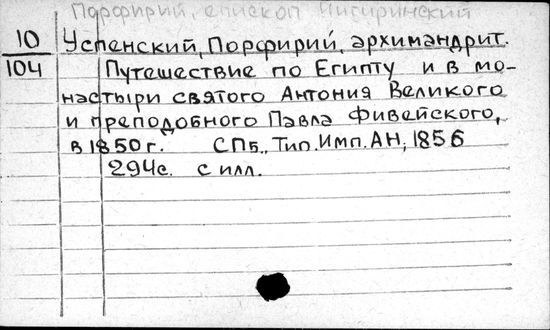 Порфирий, епископ Чигиринский
10 Успенский, Порфирий, архимандрит.
104 Путешествие по Египту и в мо-
настыри святого Антония Великого
и преподобного Павла Фивейского,
в 1850г. СПб., Тип. Имп. АН, 1856
294с. с илл.